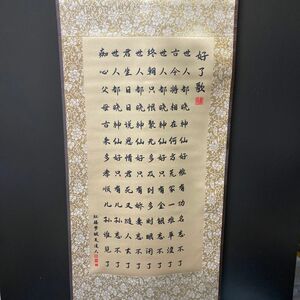 好了歌
世人都晓神仙好惟有功名忘不了
古今将相在何方荒冢一堆草没了
世人都晓神仙好只有金银忘不了
终朝只恨聚无多及到多时眼闭了
世人都晓神仙好只有娇妻忘不了
君生日日说恩情君死又随人去了
世人都晓神仙好只有儿孙忘不了
痴心父母古来多孝顺儿孙谁见了
红楼梦跛足道人